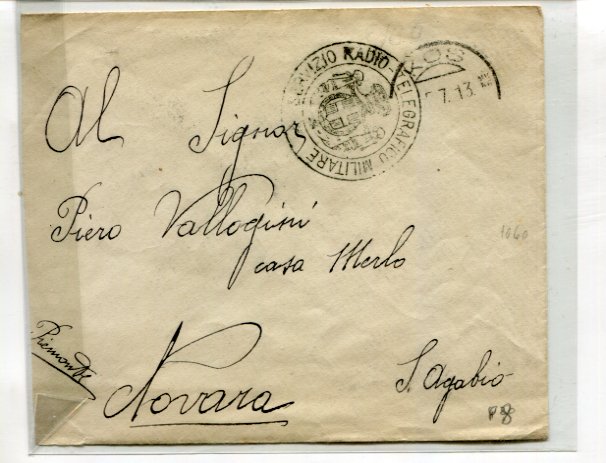 SERVIZIO RADIO-TELEGRAFICO MILITARE
KOS
7.13
Al Signor
Piero Vallogini
casa Merlo
1060
Piemonte
Novara
S. Agabio